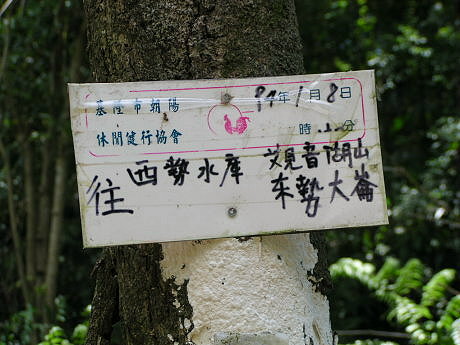 基隆市朝陽
94年1月8日
休閒健行協會
時 分
往西勢水庫
東勢大崙